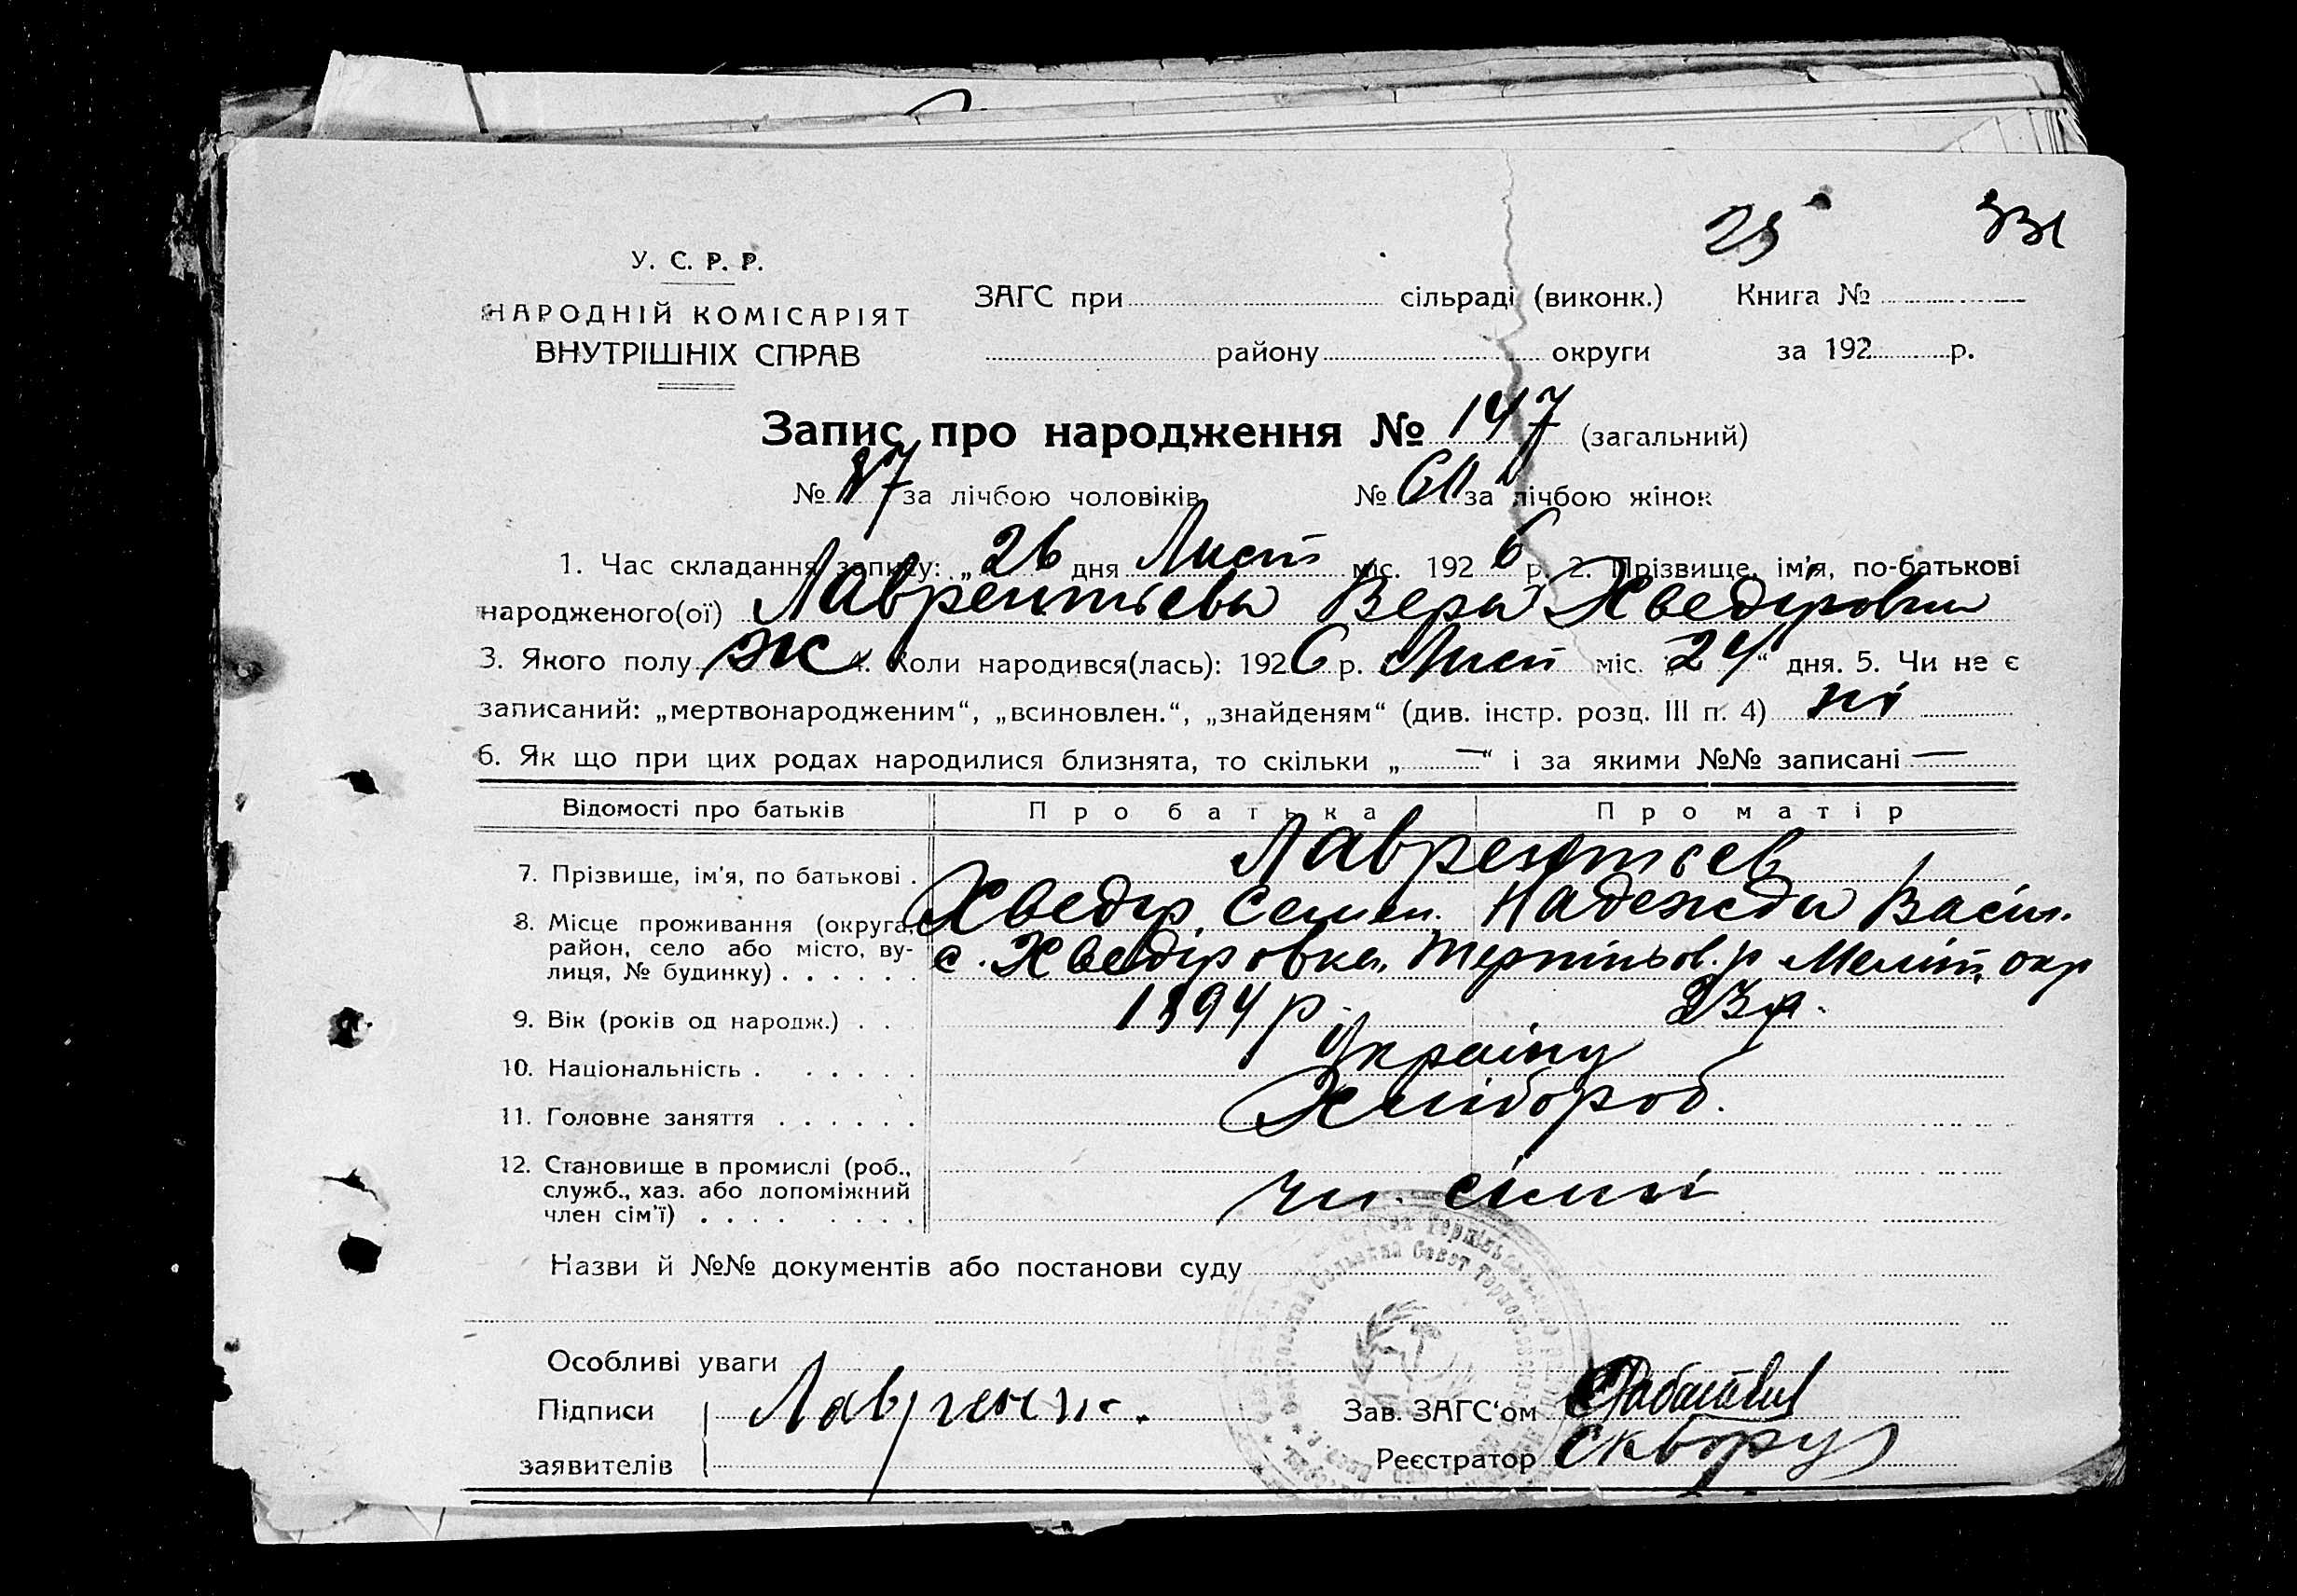 25 331
У. С. Р. Р.
НАРОДНІЙ КОМІСАРІЯТ
ВНУТРІШНІХ СПРАВ
ЗАГС при сільраді (виконк.) Книга №
району округи за 192 р.
Запис про народження № 147 (загальний)
№ 87 за лічбою чоловіків № 60 за лічбою жінок
1. Час складання запису: „ 26 дня Лист міс. 1926 р. 2. Прізвище, ім'я, по-батькові
народженого(ої) Лаврентієва Вера Хведіровна
3. Якого полу Ж 4. Коли народився(лась): 1926 р. Лист міс. „24“ дня. 5. Чи не є
записаний: „мертвонародженим“, „всиновлен.“, „знайденям“ (див. інстр. розд. III п. 4) ні
6. Як що при цих родах народилися близнята, то скільки „—“ і за якими №№ записані —
Відомості про батьків Про батька Про матір
7. Прізвище, ім'я, по батькові . Лаврентієв
Хведір Семен. Надежда Васіл.
8. Місце проживання (округа,
район, село або місто, ву-
лиця, № будинку) . . . . . . с. Хведіровка, Терпіньов. р Меліт. окр
9. Вік (років од народж.) . . 1894 р. 23 р.
10. Національність . . . . . . Україну
11. Головне заняття . . . . . . Хлібороб.
12. Становище в промислі (роб.,
служб., хаз. або допоміжний
член сім'ї) . . . . . . . . чл. сімї
Назви й №№ документів або постанови суду
Особливі уваги
Підписи Лаврент. Зав. ЗАГС'ом
заявителів Реєстратор